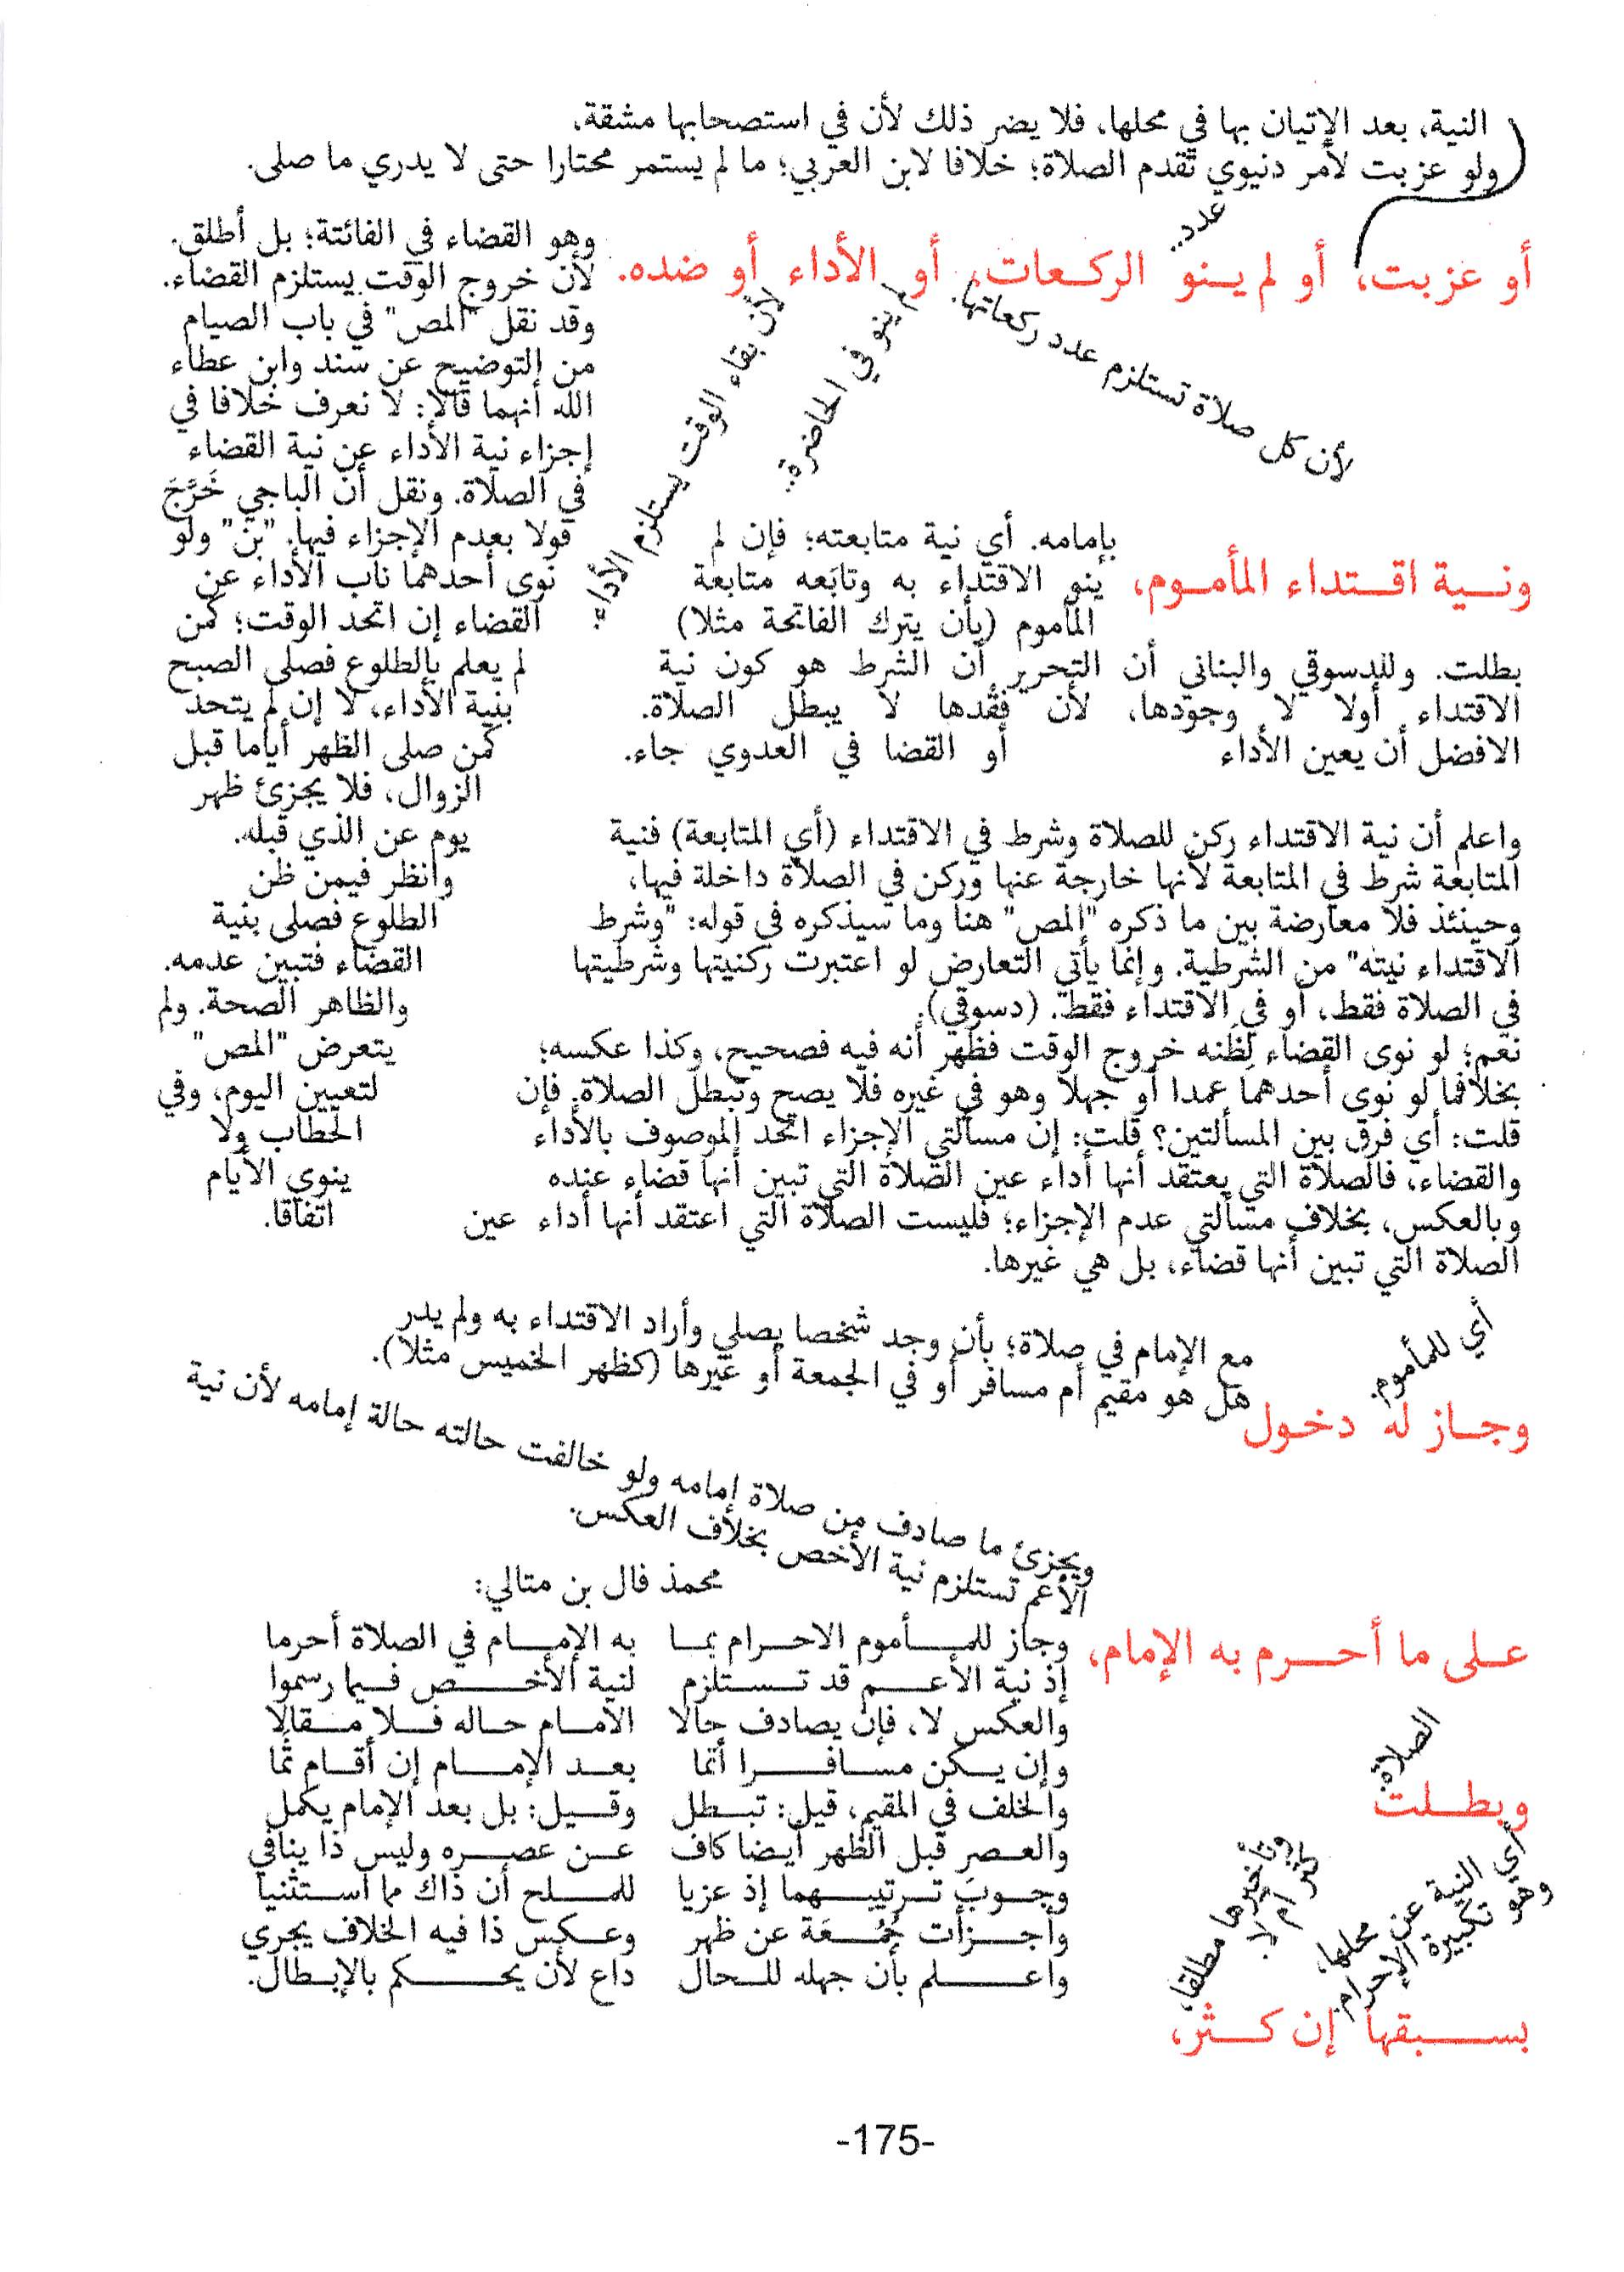 النية، بعد الإتيان بها في محلها، فلا يضر ذلك لأن في استصحابها مشقة،
ولو عزبت لأمر دنيوي تقدم الصلاة؛ خلافا لابن العربي؛ ما لم يستمر مختارا حتى لا يدري ما صلى.
أو عزبت، أو لم ينو الركعات، أو الأداء أو ضده.
عدد..
لأن كل صلاة تستلزم عدد ركعاتها.
لم ينو في الحاضرة..
لأن بقاء الوقت يستلزم الأداء.
وهو القضاء في الفائتة؛ بل أطلق.
لأن خروج الوقت يستلزم القضاء.
وقد نقل "المص" في باب الصيام
من التوضيح عن سند وابن عطاء
الله أنهما قالا: لا نعرف خلافا في
إجزاء نية الأداء عن نية القضاء
في الصلاة. ونقل أن الباجي خَرَّجَ
قولا بعدم الإجزاء فيها. "بن" ولو
نوى أحدهما ناب الأداء عن
القضاء إن اتحد الوقت؛ كمن
لم يعلم بالطلوع فصلى الصبح
بنية الأداء، لا إن لم يتحد
كمن صلى الظهر أياما قبل
الزوال، فلا يجزئ ظهر
يوم عن الذي قبله.
وانظر فيمن ظن
الطلوع فصلى بنية
القضاء فتبين عدمه.
والظاهر الصحة. ولم
يتعرض "المص"
لتعيين اليوم، وفي
الحطاب ولا
ينوي الأيام
اتفاقا.
ونية اقتداء المأموم،
بإمامه. أي نية متابعته؛ فإن لم
ينو الاقتداء به وتابَعه متابعة
المأموم (بأن يترك الفاتحة مثلا)
بطلت. وللدسوقي والبناني أن التحرير أن الشرط هو كون نية
الاقتداء أولا لا وجودها، لأن فقْدها لا يبطل الصلاة.
الافضل أن يعين الأداء أو القضا في العدوي جاء.
واعلم أن نية الاقتداء ركن للصلاة وشرط في الاقتداء (أي المتابعة) فنية
المتابعة شرط في المتابعة لأنها خارجة عنها وركن في الصلاة داخلة فيها،
وحينئذ فلا معارضة بين ما ذكره "المص" هنا وما سيذكره في قوله: "وشرط
الاقتداء نيته" من الشرطية. وإنما يأتي التعارض لو اعتبرت ركنيتها وشرطيتها
في الصلاة فقط، أو في الاقتداء فقط. (دسوقي).
نعم؛ لو نوى القضاء لِظَنه خروج الوقت فظهر أنه فيه فصحيح، وكذا عكسه؛
بخلافما لو نوى أحدهما عمدا أو جهلا وهو في غيره فلا يصح وتبطل الصلاة. فإن
قلت: أي فرق بين المسألتين؟ قلت: إن مسألتي الإجزاء اتحد الموصوف بالأداء
والقضاء، فالصلاة التي يعتقد أنها أداء عين الصلاة التي تبين أنها قضاء عنده
وبالعكس، بخلاف مسألتي عدم الإجزاء؛ فليست الصلاة التي اعتقد أنها أداء عين
الصلاة التي تبين أنها قضاء، بل هي غيرها.
أي للمأموم.
وجاز له دخول
مع الإمام في صلاة؛ بأن وجد شخصا يصلي وأراد الاقتداء به ولم يدر
هل هو مقيم أم مسافر أو في الجمعة أو غيرها (كظهر الخميس مثلا).
ويجزئ ما صادف من صلاة إمامه ولو خالفت حالته حالة إمامه لأن نية
الأعم تستلزم نية الأخص بخلاف العكس.
على ما أحرم به الإمام،
محمذ فال بن متالي:
وجاز للمأموم الاحرام بما به الإمام في الصلاة أحرما
إذ نية الأعم قد تستلزم لنية الأخص فيما رسموا
والعكس لا، فإن يصادف حالا الامام حاله فلا مقالا
وإن يكن مسافرا أتما بعد الإمام إن أقام ثَمَّا
والخلف في المقيم، قيل: تبطل وقيل: بل بعد الإمام يكمل
والعصر قبل الظهر أيضا كاف عن عصره وليس ذا ينافي
وجوبَ ترتيبهما إذ عزيا للملح أن ذاك مما استثنيا
وأجزأت جُمُعَة عن ظهر وعكس ذا فيه الخلاف يجري
واعلم بأن جهله للحال داع لأن يحكم بالإبطال.
الصلاة.
وبطلت
أي النية عن محلها،
وهو تكبيرة الإحرام.
بسبقها إن كثر،
وتأخيرها مطلقا،
كثر ام لا.
-175-